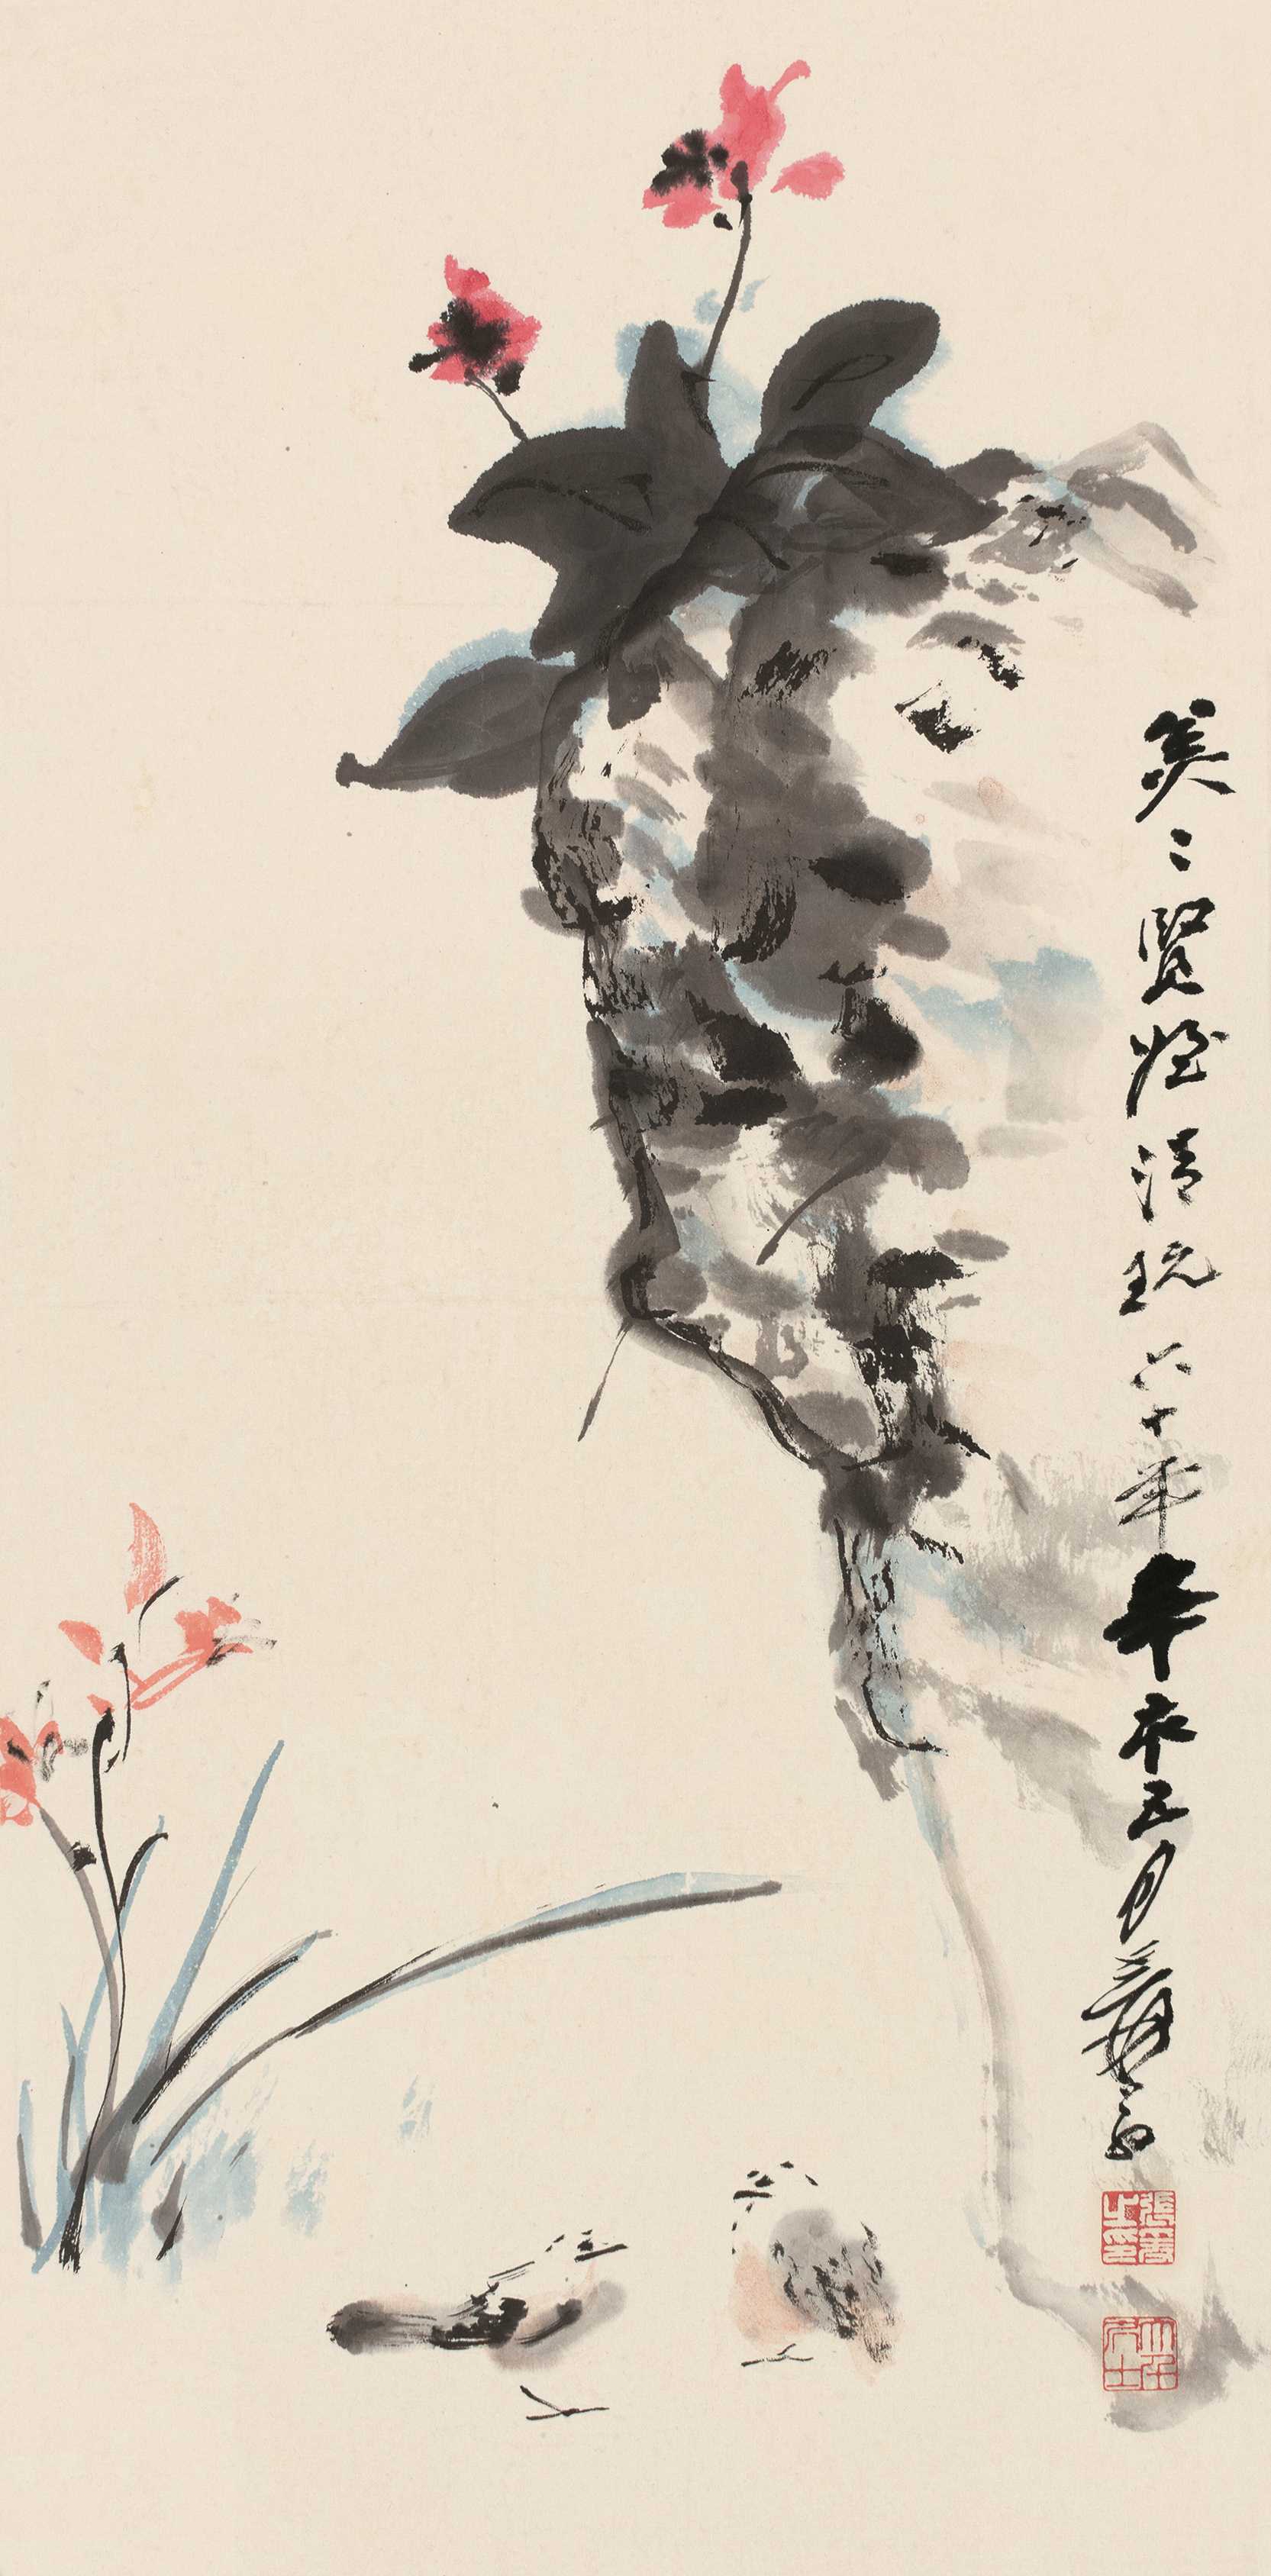 美〻賢姪清玩 六十年辛亥五月 爰翁
張爰之印
大千居士